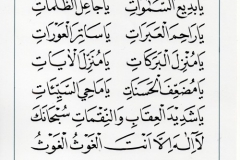 يَا بَدِيعَ السَّمٰوَاتِ يَا جَاعِلَ الظُّلُمَاتِ
يَا رَاحِمَ الْعَبَرَاتِ يَا سَاتِرَ الْعَوْرَاتِ
يَا مُنْزِلَ الْبَرَكَاتِ يَا مُنْزِلَ الْاٰيَاتِ
يَا مُضَعِّفَ الْحَسَنَاتِ يَا مَاحِيَ السَّيِّئَاتِ
يَا شَدِيدَ الْعِقَابِ وَالنَّقِمَاتِ سُبْحَانَكَ
لَا اِلٰهَ اِلَّا اَنْتَ الْغَوْثَ الْغَوْثَ